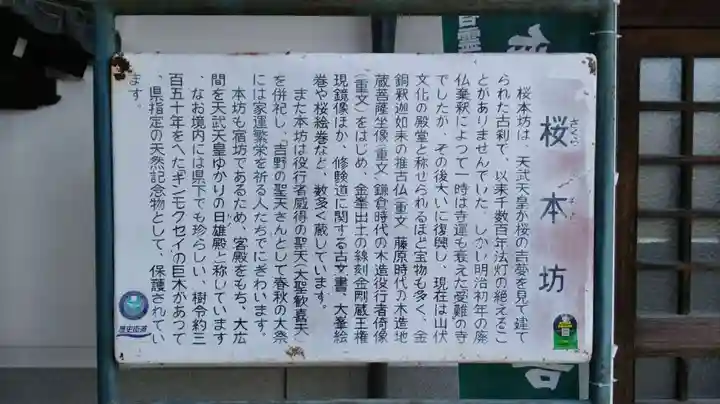 桜本坊
さくら
桜本坊は、天武天皇が桜の吉夢を見て建て
られた古刹で、以来千数百年法灯の絶えるこ
とがありませんでした。しかし明治初年の廃
仏棄釈によって一時は寺運も衰えた受難の寺
でしたが、その後大いに復興し、現在は山伏
文化の殿堂と称せられるほど宝物も多く、金
銅釈迦如来の推古仏(重文)藤原時代の木造地
蔵菩薩坐像(重文)鎌倉時代の木造役行者倚像
(重文)をはじめ、金峯出土の線刻金剛蔵王権
現鏡像ほか、修験道に関する古文書、大峯絵
巻や桜絵巻など、数多く蔵しています。
また本坊は役行者感得の聖天(大聖歓喜天)
を併祀し、「吉野の聖天さん」として春秋の大祭
には家運繁栄を祈る人たちでにぎわいます。
本坊も宿坊であるため、客殿をもち、大広
間を天武天皇ゆかりの日雄殿と称しています
。なお境内には県下でも珍らしい、樹令約三
百五十年をへたギンモクセイの巨木があって
、県指定の天然記念物として、保護されてい
ます。
歴史街道